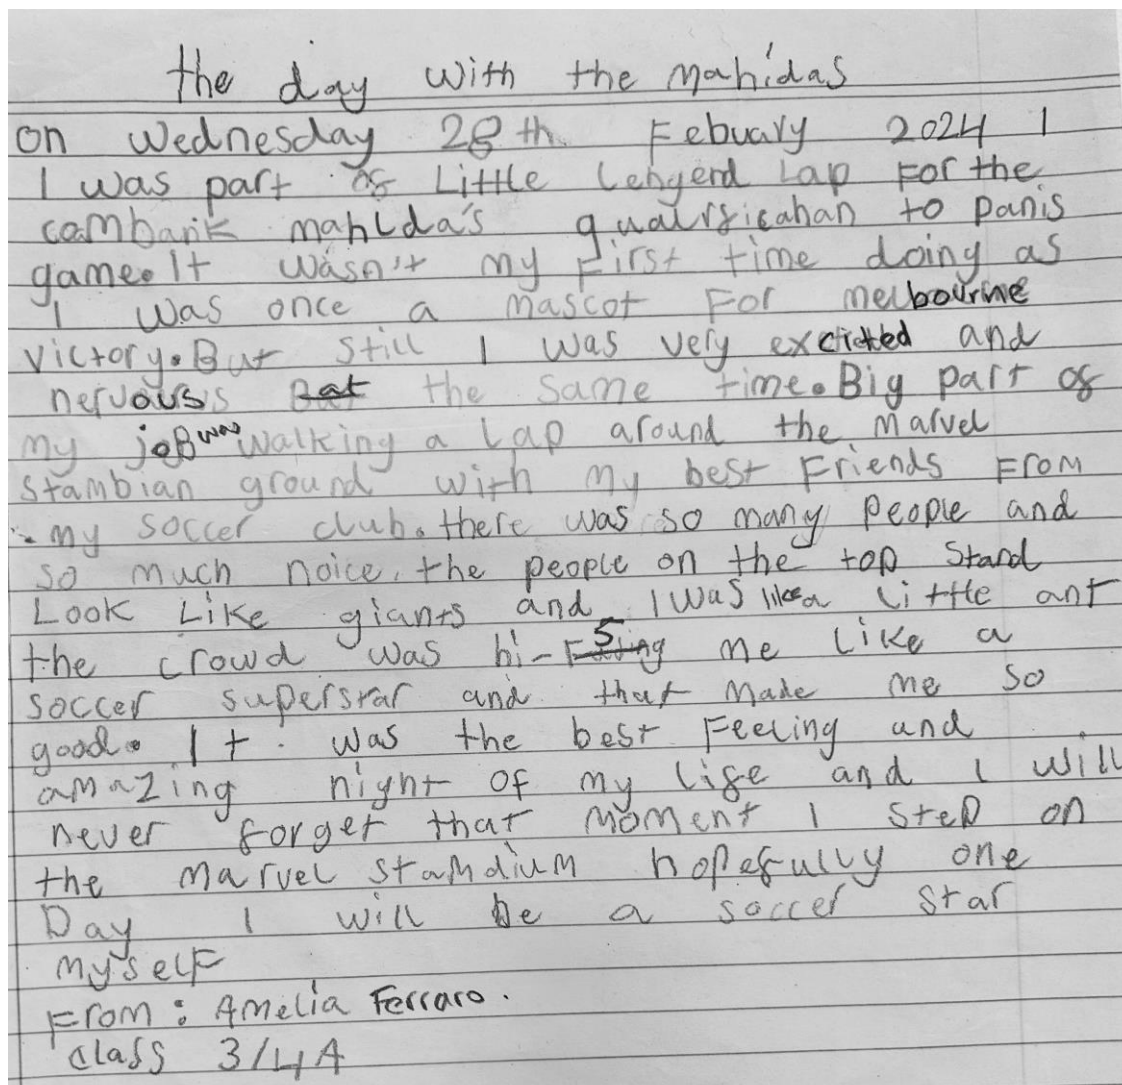 the day with the mahidas
on Wednesday 28th Febuary 2024 I
I was part of Little Lengerd Lap For the
combank mahLda's qualrficahan to panis
game. It wasn't my First time doing as
I was once a mascot For melbourne
victory. But still I was very exciteted and
nervouss at the same time. Big part of
my joB was walking a Lap around the marvel
Stambian ground with my best Friends From
my soccer club. there was so many people and
so much noice. the people on the top stand
Look Like giants and I was like a little ant
the crowd was hi-5ing me Like a
soccer superstar and that made me so
good. It was the best Feeling and
amazing night of my life and I will
never forget that moment I step on
the marvel stamdium hopefully one
Day I will be a soccer star
myself
From: Amelia Ferraro.
class 3/4A